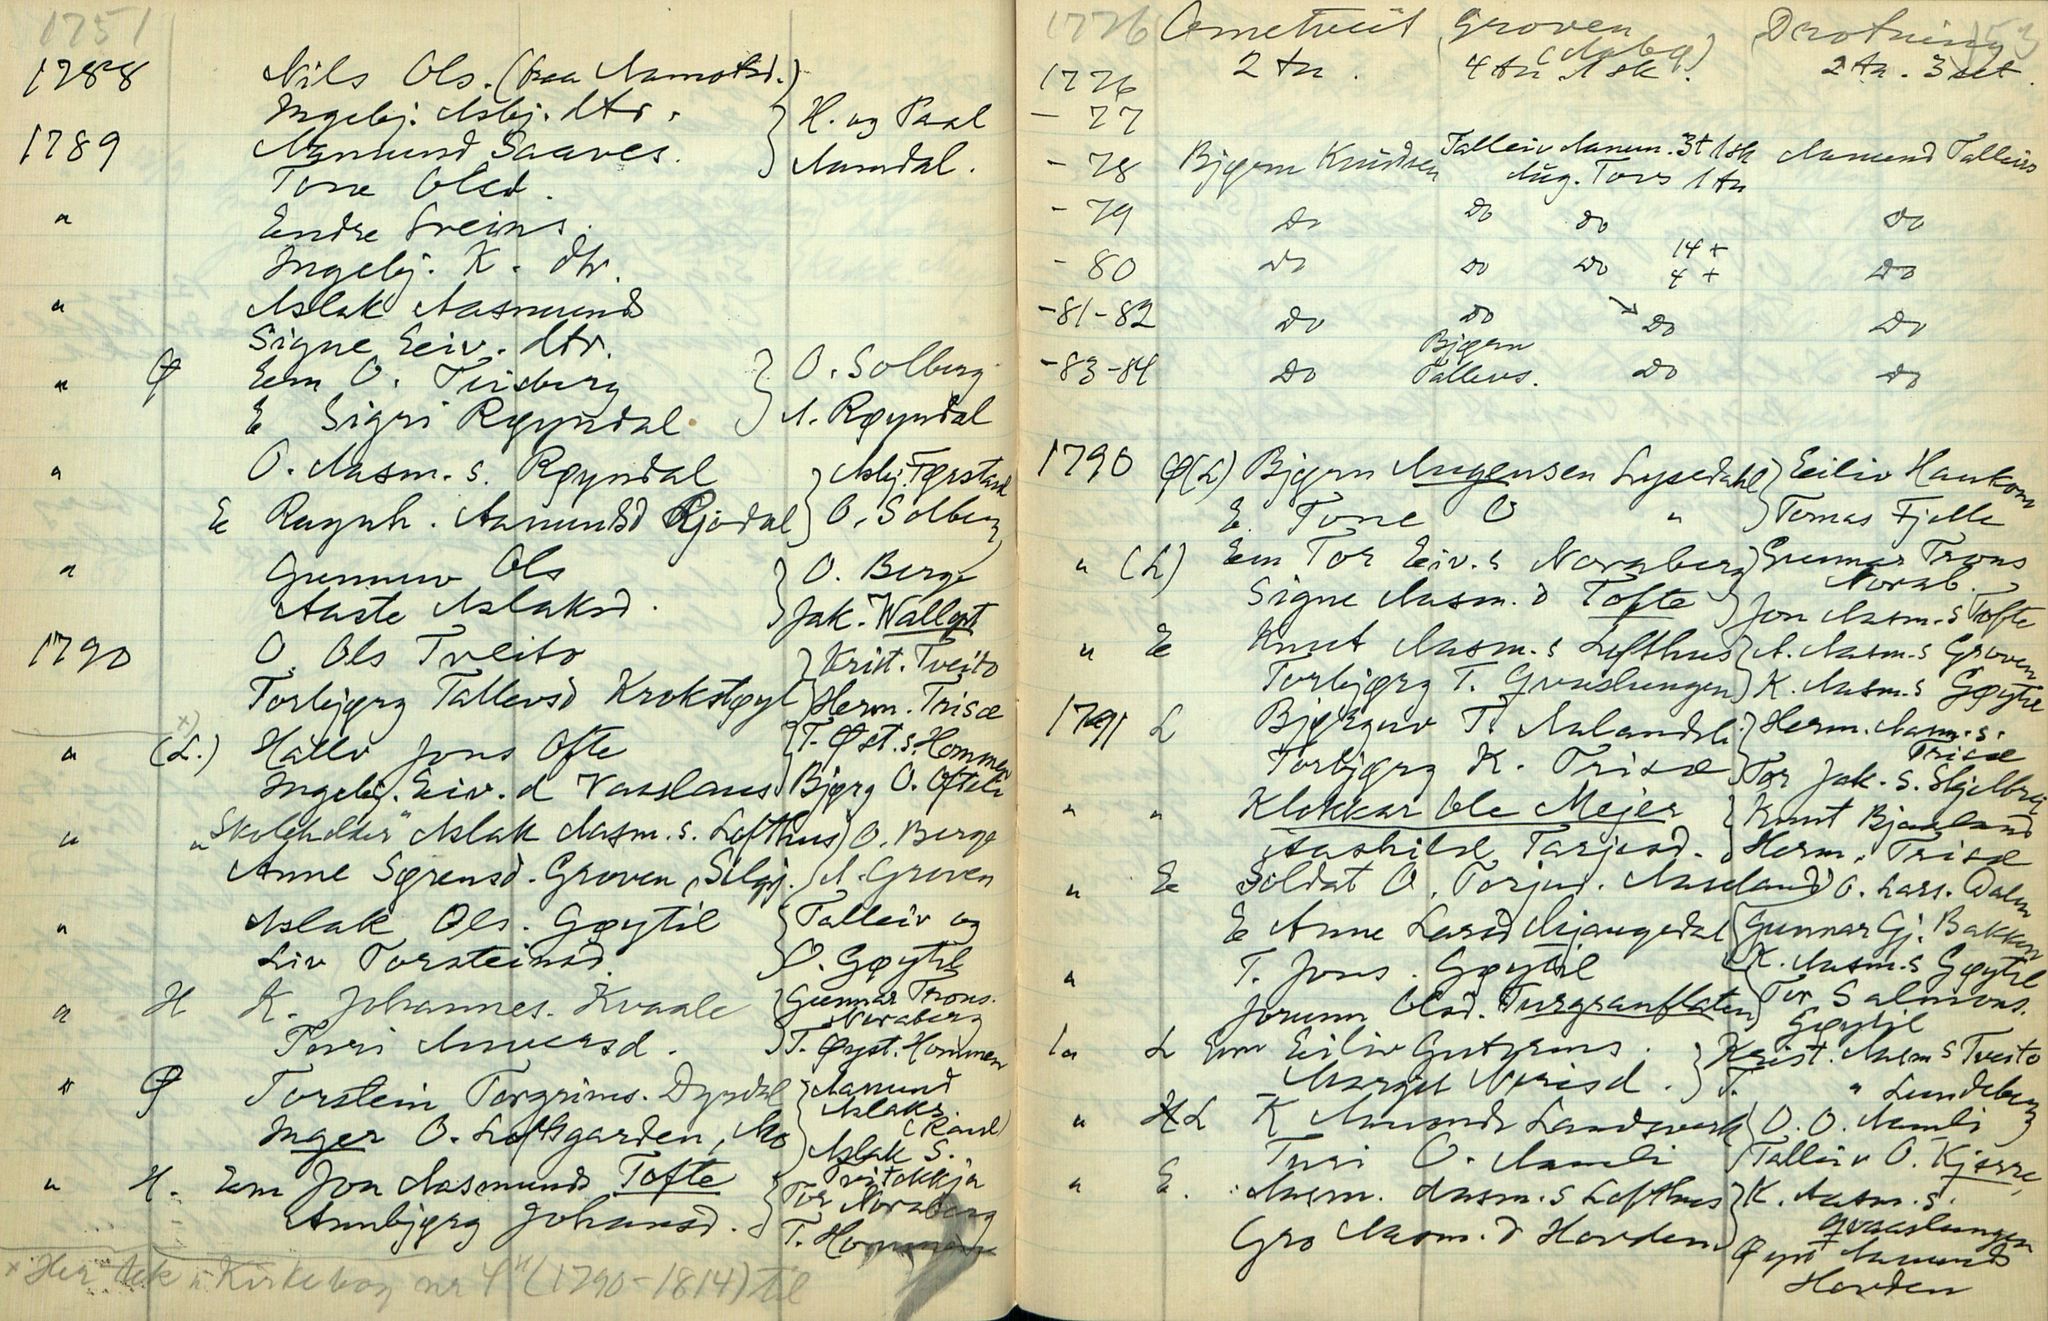 1751
1788 Nils Ols. (fraa Aamotsd.)
Ingebj. Asbj. dtr. H. og Paal
1789 Aamund Saaves. Aamdal.
Tone Olsd.
" Endre Sveins.
Ingebj. K. dtr.
" Aslak Aasmunds
Signe Eiv. dtr.
" Ø Em O. Tinsberg O. Solberg
E Sigri Røyndal A. Røyndal
" O. Aasm. s. Røyndal Asbj. Førstad
E Ragnh. Aamundsd Gjødal O. Solberg
" Gunnuv Ols O. Berge
Aaste Aslaksd. Jak. Walløst
1790 O. Ols Tveito Krist. Tveito
Torbjørg Tallevsd Krokstøyl Herm. Trisæ
" (L.) Hallv Jons Ofte T. Øst. s. Hommen
Ingebj. Eiv. d Vaaslaus Bjørg O. Ofteli
" "Skoleholder" Aslak Aasm. s. Lofthus O. Berge
Anne Sørensd. Groven, Silgj. A. Groven
" Aslak Ols. Gøytil Talleiv og
Liv Torsteinsd. O. Gøytil
" H K. Johannes. Kvaale Gunnar Trons. Noraberg
Torri Anversd. T. Øyst. Hommen
" Ø Torstein Torgrims. Dyrdal Aamund Aslaks. (Raul)
Inger O. Loftsgarden, Mo Aslak S.
" H. Em Jon Aasmunds Tofte Tor Noraberg
Annbjørg Johansd. T. Hommen
x Her tek "Kirkebog nr 4" (1790-1814) til
1776 Ametveit Groven (Aabø) Drotning 53
1776 2 tn. 4 tn 1 sk. 2 tn. 3 set.
- 77
- 78 Bjørn Knudsen Talleiv Aamun. 3t 1sk Aamund Talleivs
Aug. Tovs 1 tn
- 79 Do Do Do Do
- 80 Do Do Do 14 + 4 + Do
- 81-82 Do Do Do Do
- 83-84 Do Bjørn Tallevs. Do Do
1790 Ø(L) Bjørn Augensen Lysedahl Eiliv Haukom
E. Tone O " Tomas Fjelle
" (L) Em Tor Eiv. s Noraberg Gunnar Trons Norab.
Signe Aasm. d Tofte Jon Aasm. s Tofte
" E Knut Aasm. s Lofthus A. Aasm. s Groven
Torbjørg T. Gvaslungen K. Aasm. s Gøytil
1791 L Bjørguv T. Aalandsli Herm. Aasm. s. Trisæ
Torbjørg K. Trisæ Tor Jak. s. Skjelbrei
" " Klokkar Ole Mejer Knut Bjaaland
Aashild Tarjesd. Herm. Trisæ
" E Soldat O. Torjus. Aaseland O. Lars. Dalen
E Anne Larsd Mjaugedal Gunnar Gj. Bakken
" T. Jons. Gøytil K. Aasm. s Gøytil
Jorunn Olsd. Turgranflaten Tor Salmons. Gøytil
" L Em Eiliv Guttorms. Krist. Aasm s Tveito
Margit Nerisd. T. " Lundeberg
" H L K Amunds Landsverk O. O. Aamli
Turi O. Aamli Talleiv O. Kjærre,
" E. Aasm. Aasm. s Lofthus K. Aasm. s. Gvaaslungen
Gro Aasm. d Hovden Øyst Aamunds Hovden